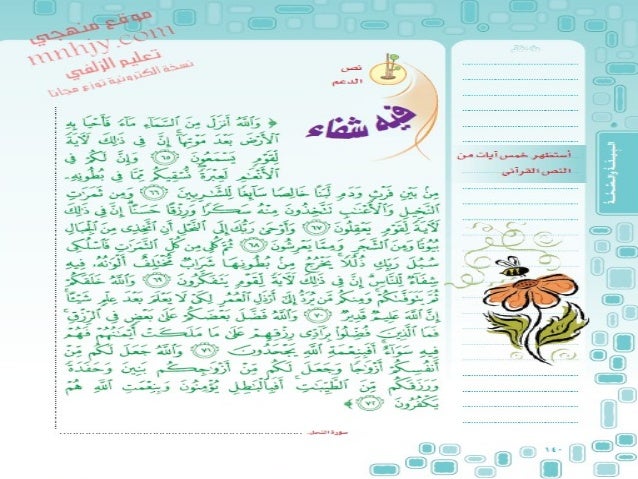 موقع منهجي
mnhjy.com
تعليم الزلفي
نسخة الكترونية توزع مجانا
نص
الدعم
فيه شفاء
﴿ وَٱللَّهُ أَنزَلَ مِنَ ٱلسَّمَآءِ مَآءً فَأَحْيَا بِهِ
ٱلْأَرْضَ بَعْدَ مَوْتِهَآ إِنَّ فِى ذَٰلِكَ لَآيَةً
لِّقَوْمٍ يَسْمَعُونَ ۝٦٥ وَإِنَّ لَكُمْ فِى
ٱلْأَنْعَٰمِ لَعِبْرَةً نُّسْقِيكُم مِّمَّا فِى بُطُونِهِۦ
مِنۢ بَيْنِ فَرْثٍ وَدَمٍ لَّبَنًا خَالِصًا سَآئِغًا لِّلشَّٰرِبِينَ ۝٦٦ وَمِن ثَمَرَٰتِ
ٱلنَّخِيلِ وَٱلْأَعْنَٰبِ تَتَّخِذُونَ مِنْهُ سَكَرًا وَرِزْقًا حَسَنًا إِنَّ فِى ذَٰلِكَ
لَآيَةً لِّقَوْمٍ يَعْقِلُونَ ۝٦٧ وَأَوْحَىٰ رَبُّكَ إِلَى ٱلنَّحْلِ أَنِ ٱتَّخِذِى مِنَ ٱلْجِبَالِ
بُيُوتًا وَمِنَ ٱلشَّجَرِ وَمِمَّا يَعْرِشُونَ ۝٦٨ ثُمَّ كُلِى مِن كُلِّ ٱلثَّمَرَٰتِ فَٱسْلُكِى
سُبُلَ رَبِّكِ ذُلُلًا يَخْرُجُ مِنۢ بُطُونِهَا شَرَابٌ مُّخْتَلِفٌ أَلْوَٰنُهُۥ فِيهِ
شِفَآءٌ لِّلنَّاسِ إِنَّ فِى ذَٰلِكَ لَآيَةً لِّقَوْمٍ يَتَفَكَّرُونَ ۝٦٩ وَٱللَّهُ خَلَقَكُمْ
ثُمَّ يَتَوَفَّىٰكُمْ وَمِنكُم مَّن يُرَدُّ إِلَىٰٓ أَرْذَلِ ٱلْعُمُرِ لِكَىْ لَا يَعْلَمَ بَعْدَ عِلْمٍ شَيْـًٔا
إِنَّ ٱللَّهَ عَلِيمٌ قَدِيرٌ ۝٧٠ وَٱللَّهُ فَضَّلَ بَعْضَكُمْ عَلَىٰ بَعْضٍ فِى ٱلرِّزْقِ
فَمَا ٱلَّذِينَ فُضِّلُوا۟ بِرَآدِّى رِزْقِهِمْ عَلَىٰ مَا مَلَكَتْ أَيْمَٰنُهُمْ فَهُمْ
فِيهِ سَوَآءٌ أَفَبِنِعْمَةِ ٱللَّهِ يَجْحَدُونَ ۝٧١ وَٱللَّهُ جَعَلَ لَكُم مِّنْ
أَنفُسِكُمْ أَزْوَٰجًا وَجَعَلَ لَكُم مِّنْ أَزْوَٰجِكُم بَنِينَ وَحَفَدَةً
وَرَزَقَكُم مِّنَ ٱلطَّيِّبَٰتِ أَفَبِٱلْبَٰطِلِ يُؤْمِنُونَ وَبِنِعْمَتِ ٱللَّهِ هُمْ
يَكْفُرُونَ ۝٧٢ ﴾
سورة النحل.
أستظهر خمس آيات من
النص القرآني
البيئة والصحة
١٤٠